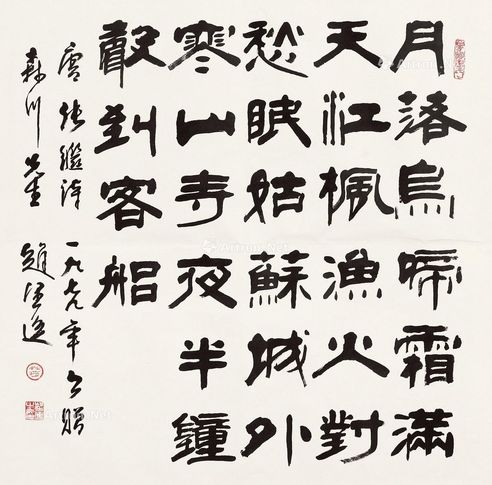 月落烏啼霜滿
天江楓漁火對
愁眠姑蘇城外
寒山寺夜半鐘
聲到客船
唐張繼詩 一九七九年书贈
森川先生 趙
Artron.Net